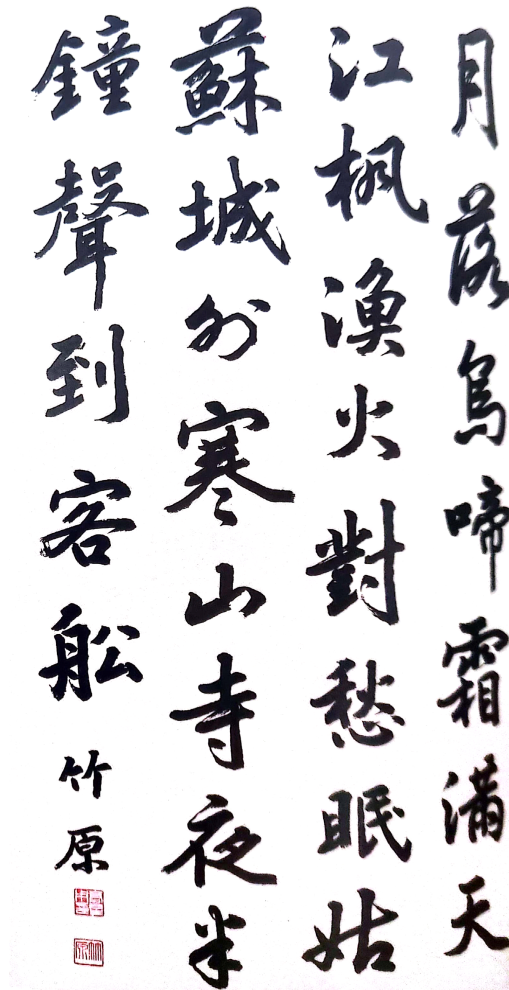 月落烏啼霜滿天
江楓漁火對愁眠姑
蘇城外寒山寺夜半
鐘聲到客船
竹原